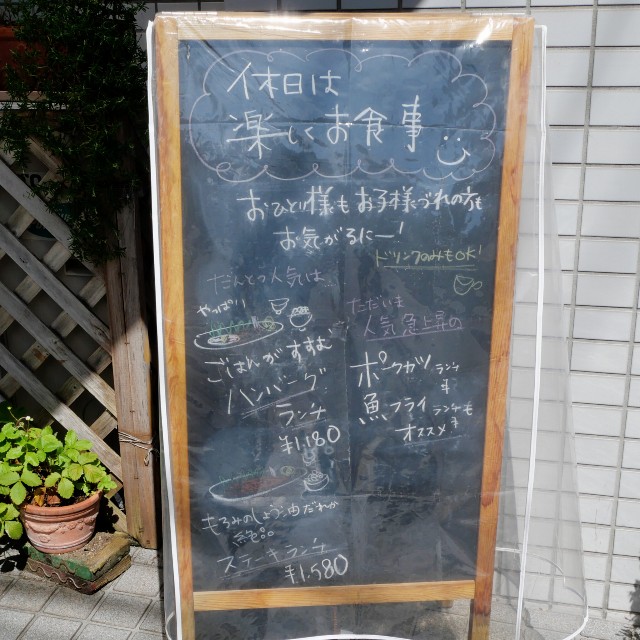 休日は
楽しくお食事
おひとり様もお子様づれの方も
お気がるにー!
ドリンクのみもOK!
人気は
やっぱり
ごはんがすすむ
ハンバーグ
ランチ
¥1,180
人気急上昇の
ポークカツランチ
魚フライランチも
オススメ
しょう油だれが
ステーキランチ
¥1,580